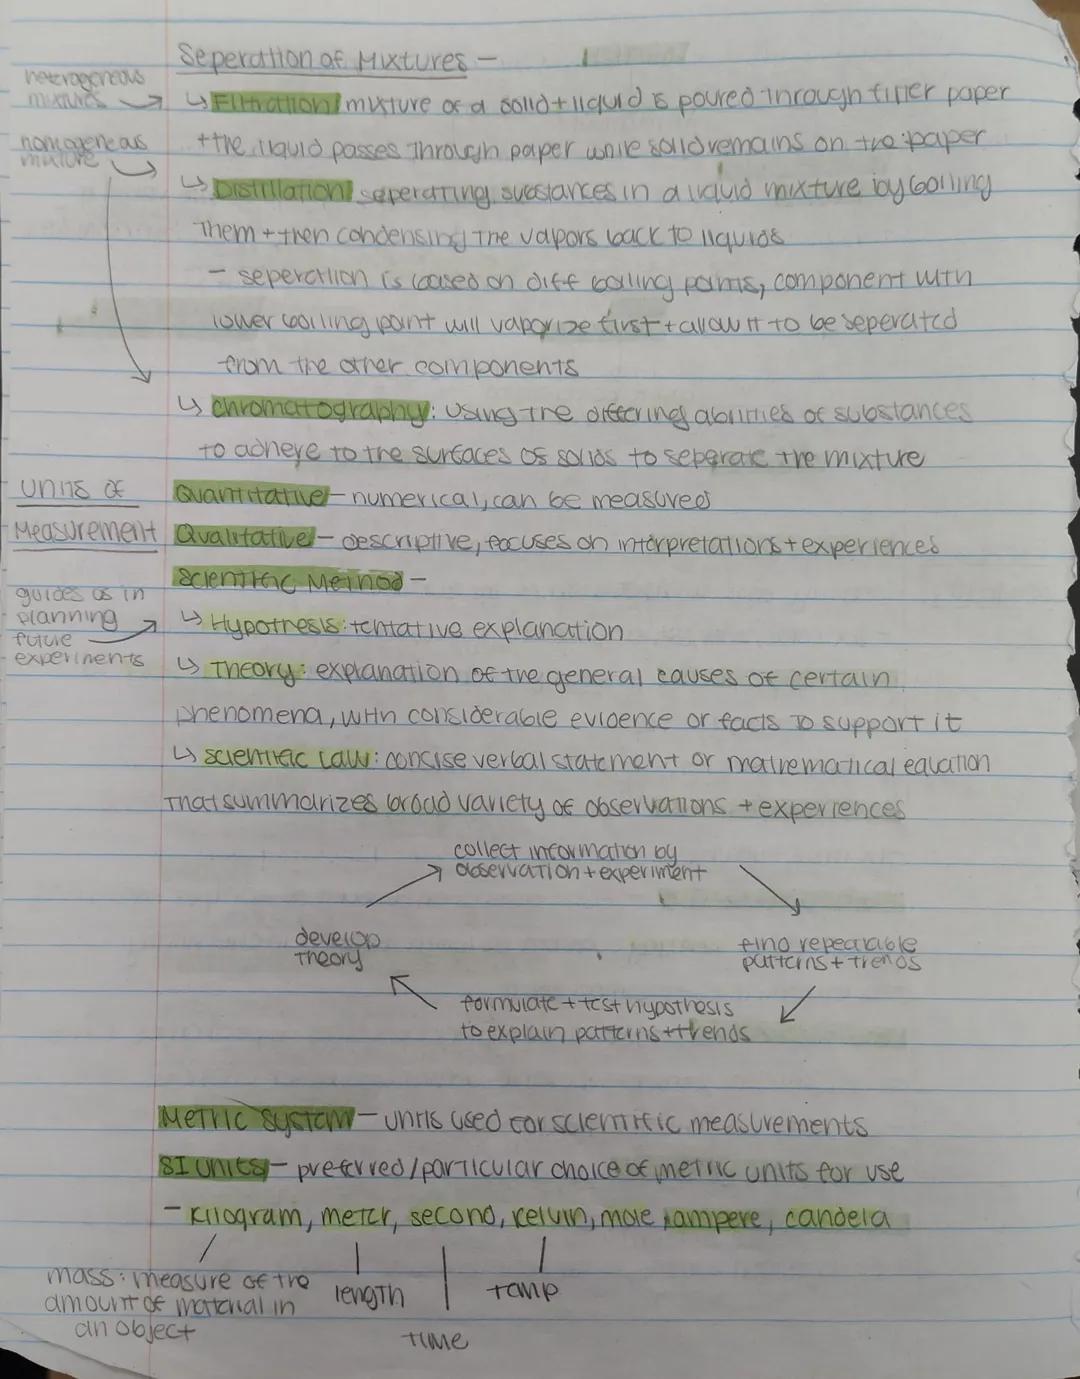 Seperation of Mixtures -
heterogeneous
mixtures → ↳ Filtration: mixture of a solid + liquid is poured through filter paper
homogeneous
mixture
+ the liquid passes through paper while solid remains on the paper
↳ Distillation: seperating substances in a liquid mixture by boiling
them + then condensing the vapors back to liquids
- seperation is based on diff boiling points, component with
lower boiling point will vaporize first + allow it to be seperated
from the other components
↳ chromatography: using the differing abilities of substances
to adhere to the surfaces of solids to seperate the mixture
Units of
Measurement
Quantitative - numerical, can be measured
Qualitative - descriptive, focuses on interpretations + experiences
Scientific Method -
guides us in
planning
future
experiments
↳ Hypothesis: tentative explanation
↳ Theory: explanation of the general causes of certain
phenomena, with considerable evidence or facts to support it
↳ scientific law: concise verbal statement or mathematical equation
that summarizes broad variety of observations + experiences
collect information by
observation + experiment
develop
theory
find repeatable
patterns + trends
formulate + test hypothesis
to explain patterns + trends
Metric System - units used for scientific measurements
SI units - preferred/particular choice of metric units for use
- kilogram, meter, second, kelvin, mole, ampere, candela
mass: measure of the
amount of material in
an object
length
time
temp